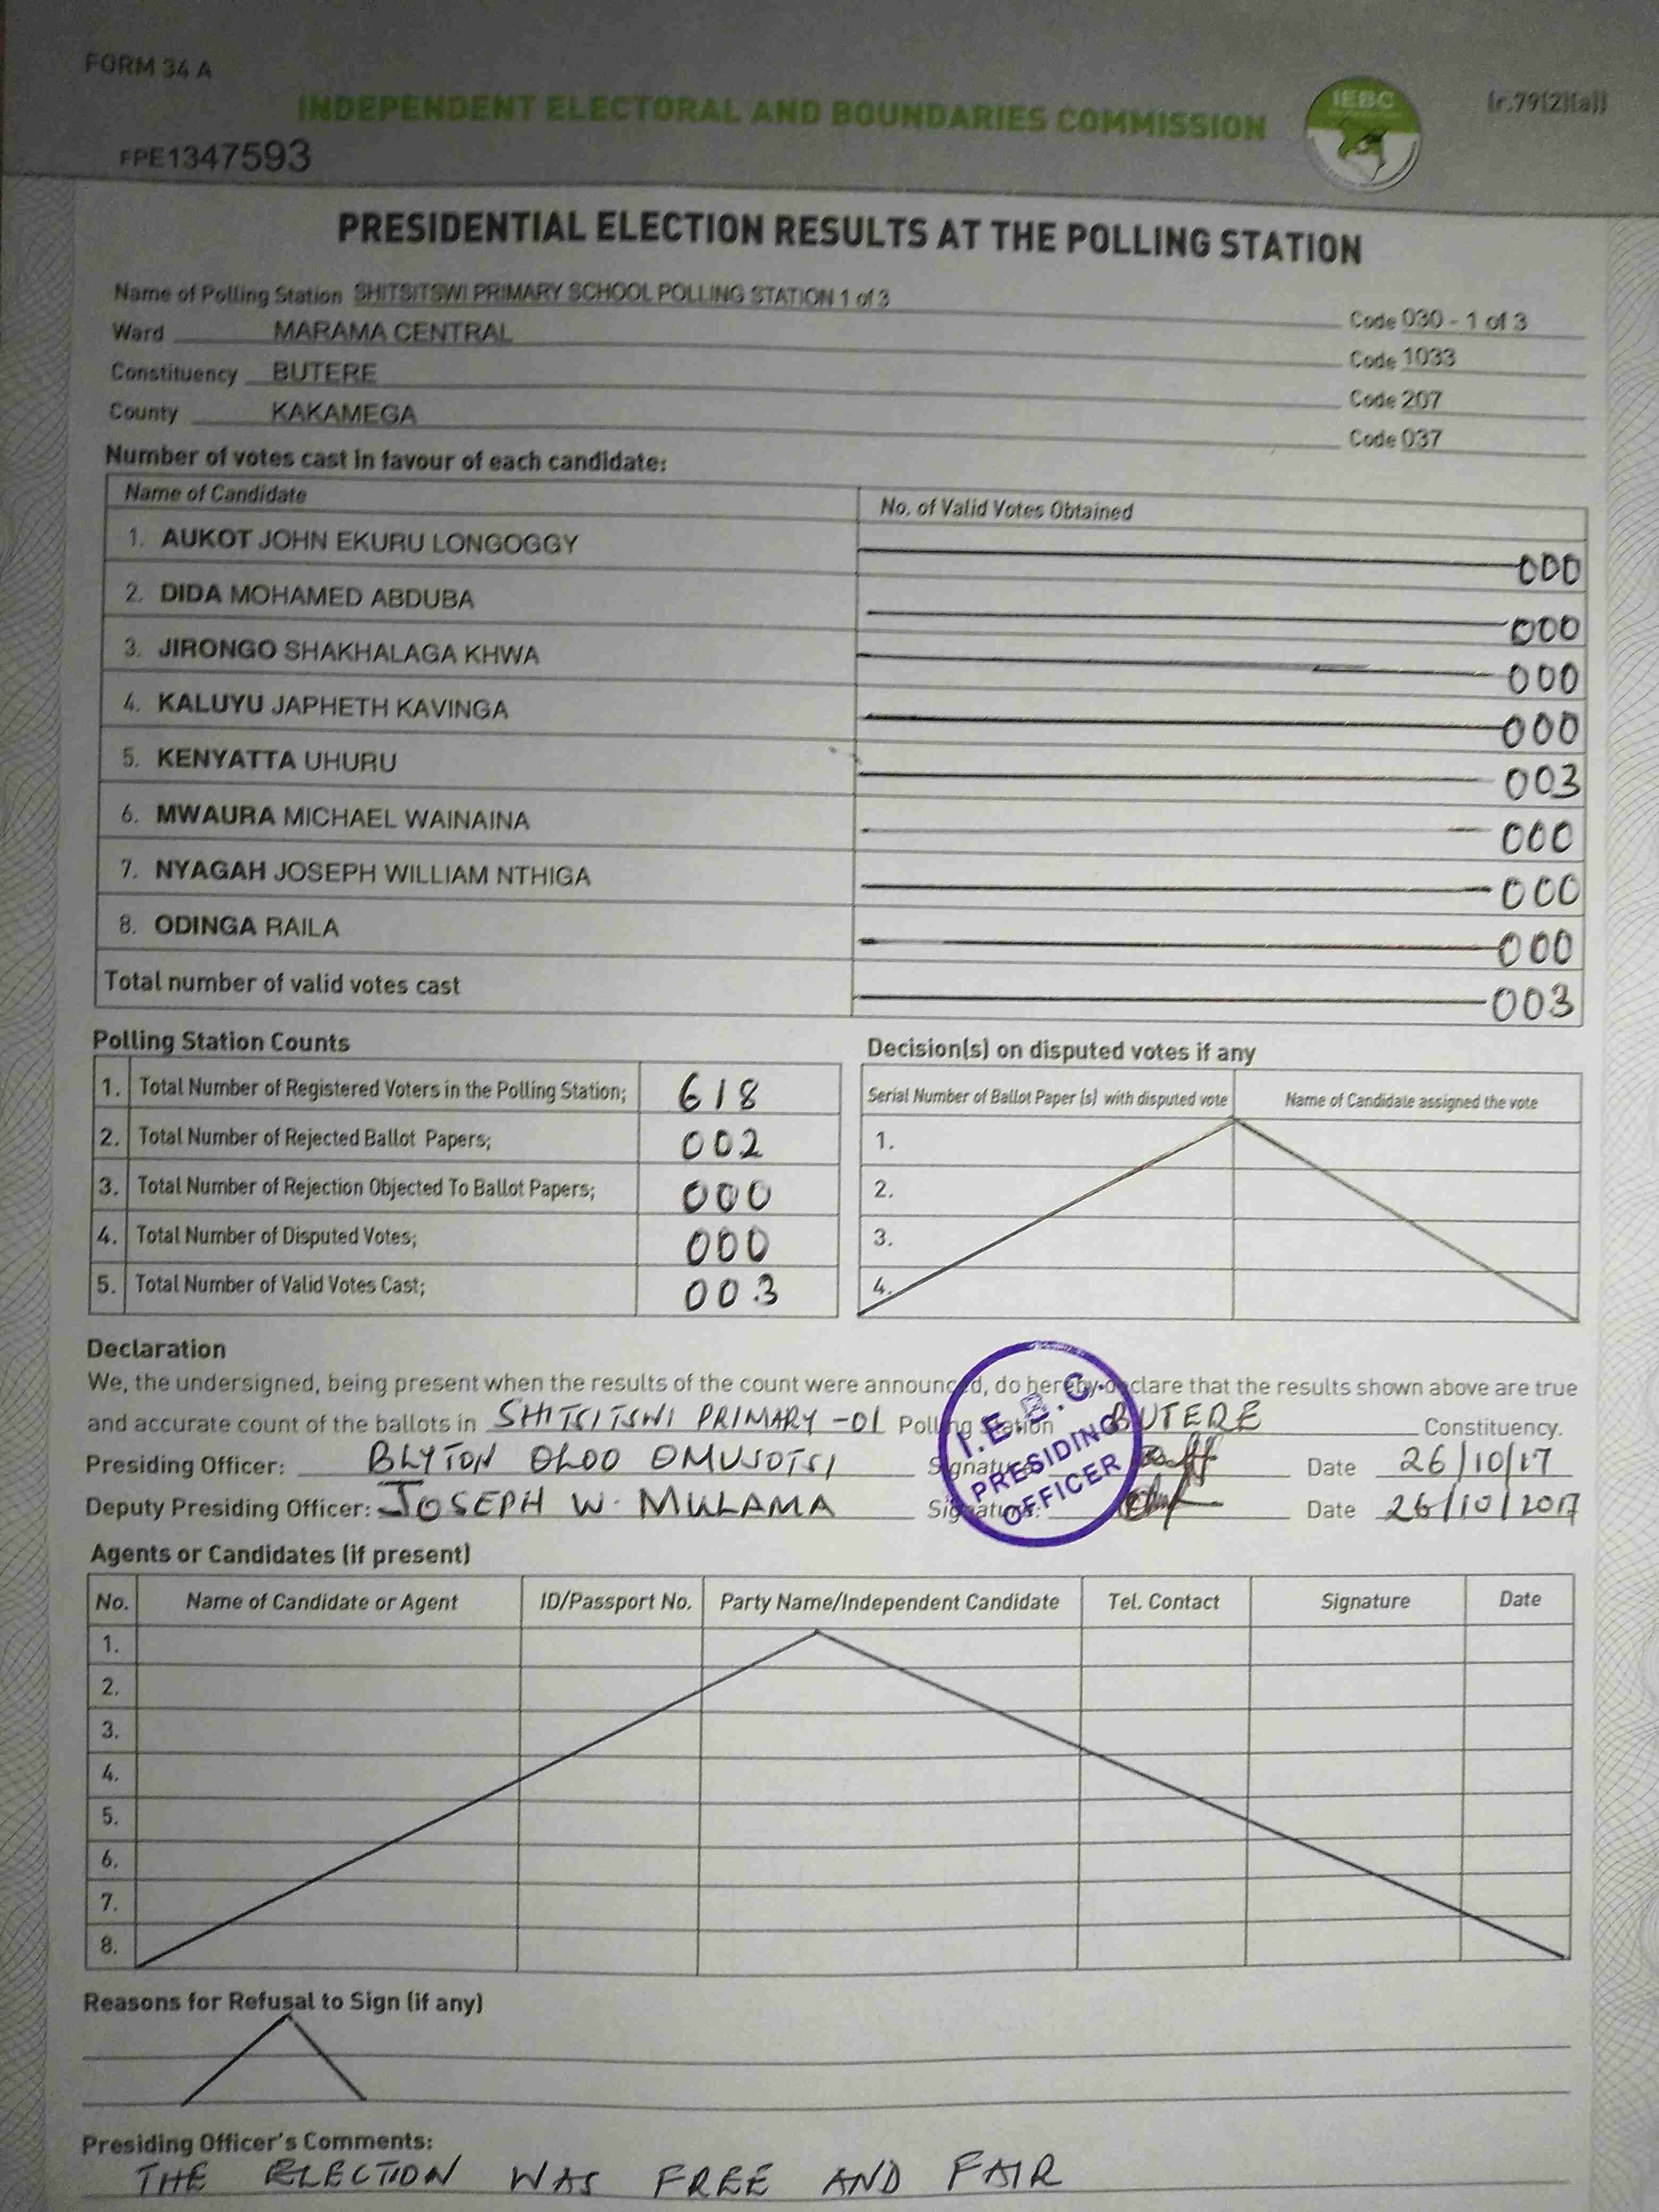 FORM 34 A
INDEPENDENT ELECTORAL AND BOUNDARIES COMMISSION
IEBC
(r.79(2)(a))
FPE1347593
PRESIDENTIAL ELECTION RESULTS AT THE POLLING STATION
Name of Polling Station SHITSITSWI PRIMARY SCHOOL POLLING STATION 1 of 3 Code 030 - 1 of 3
Ward MARAMA CENTRAL Code 1033
Constituency BUTERE Code 207
County KAKAMEGA Code 037
Number of votes cast in favour of each candidate:
Name of Candidate No. of Valid Votes Obtained
1. AUKOT JOHN EKURU LONGOGGY 000
2. DIDA MOHAMED ABDUBA 000
3. JIRONGO SHAKHALAGA KHWA 000
4. KALUYU JAPHETH KAVINGA 000
5. KENYATTA UHURU 003
6. MWAURA MICHAEL WAINAINA 000
7. NYAGAH JOSEPH WILLIAM NTHIGA 000
8. ODINGA RAILA 000
Total number of valid votes cast 003
Polling Station Counts
1. Total Number of Registered Voters in the Polling Station; 618
2. Total Number of Rejected Ballot Papers; 002
3. Total Number of Rejection Objected To Ballot Papers; 000
4. Total Number of Disputed Votes; 000
5. Total Number of Valid Votes Cast; 003
Decision(s) on disputed votes if any
Serial Number of Ballot Paper (s) with disputed vote Name of Candidate assigned the vote
1.
2.
3.
4.
Declaration
We, the undersigned, being present when the results of the count were announced, do hereby declare that the results shown above are true
and accurate count of the ballots in SHITSITSWI PRIMARY -01 Polling Station BUTERE Constituency.
Presiding Officer: BLYTON OLOO OMUSOTSI Signature: Date 26/10/17
Deputy Presiding Officer: JOSEPH W. MULAMA Signature: Date 26/10/2017
I.E.B.C.
PRESIDING
OFFICER
Agents or Candidates (if present)
No. Name of Candidate or Agent ID/Passport No. Party Name/Independent Candidate Tel. Contact Signature Date
1.
2.
3.
4.
5.
6.
7.
8.
Reasons for Refusal to Sign (if any)
Presiding Officer's Comments:
THE ELECTION WAS FREE AND FAIR